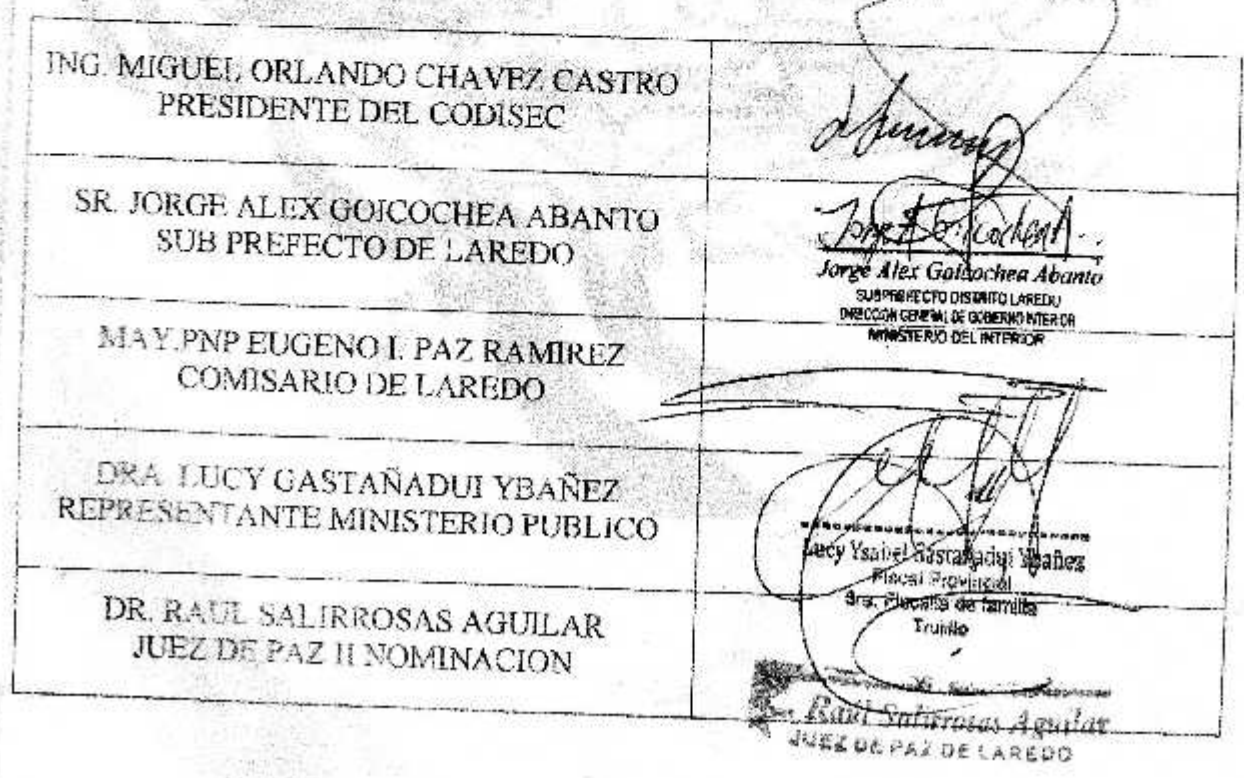 ING. MIGUEL ORLANDO CHAVEZ CASTRO
PRESIDENTE DEL CODISEC
SR. JORGE ALEX GOICOCHEA ABANTO
SUB PREFECTO DE LAREDO
Jorge A Goicochea A.
Jorge Alex Goicochea Abanto
SUBPREFECTO DISTRITO LAREDO
DIRECCION GENERAL DE GOBIERNO INTERIOR
MINISTERIO DEL INTERIOR
MAY.PNP EUGENO I. PAZ RAMIREZ
COMISARIO DE LAREDO
DRA. LUCY GASTAÑADUI YBAÑEZ
REPRESENTANTE MINISTERIO PUBLICO
Lucy Ysabel Gastañadui Ybañez
Fiscal Provincial
3ra. Fiscalia de familia
Trujillo
DR. RAUL SALIRROSAS AGUILAR
JUEZ DE PAZ II NOMINACION
Raul Salirrosas Aguilar
JUEZ DE PAZ DE LAREDO